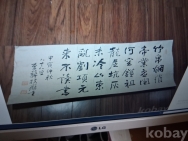 竹帛烟銷
帝業虛関
河空鎖祖
龍居坑灰
未冷山東
亂劉項元
來不讀書
LG
kobay